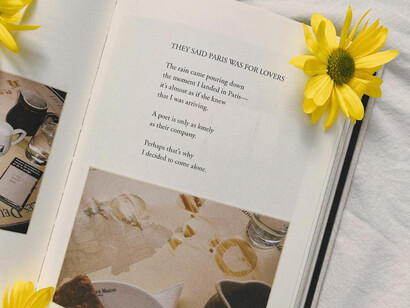 THEY SAID PARIS WAS FOR LOVERS
The rain came pouring down
the moment I landed in Paris—
it's almost as if she knew
that I was arriving.
A poet is only as lonely
as their company.
Perhaps that's why
I decided to come alone.